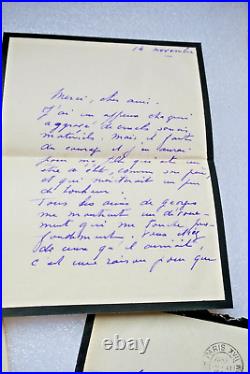 14 novembre
Merci, cher ami.
J'ai un affreux chagrin
aggravé de cruels soucis
matériels. Mais il faut
du courage et j'en aurai
pour ma fille qui est un
être d'élite, comme son père
et qui mériterait un peu
de bonheur.
Tous les amis de Georges
me montrent un dévoue-
ment qui me touche pro-
fondément; vous êtes
de ceux qu'il aimait,
c'est une raison pour que
PARIS XVII